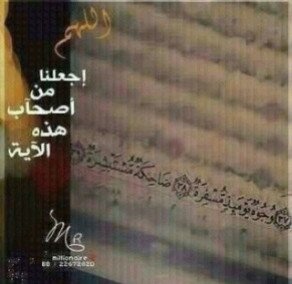 اللهم
إجعلنا
من
أصحاب
هذه
الآية
﴿٣٧﴾ وُجُوهٌ يَوْمَئِذٍ مُّسْفِرَةٌ ﴿٣٨﴾ ضَاحِكَةٌ مُّسْتَبْشِرَةٌ
millionaire